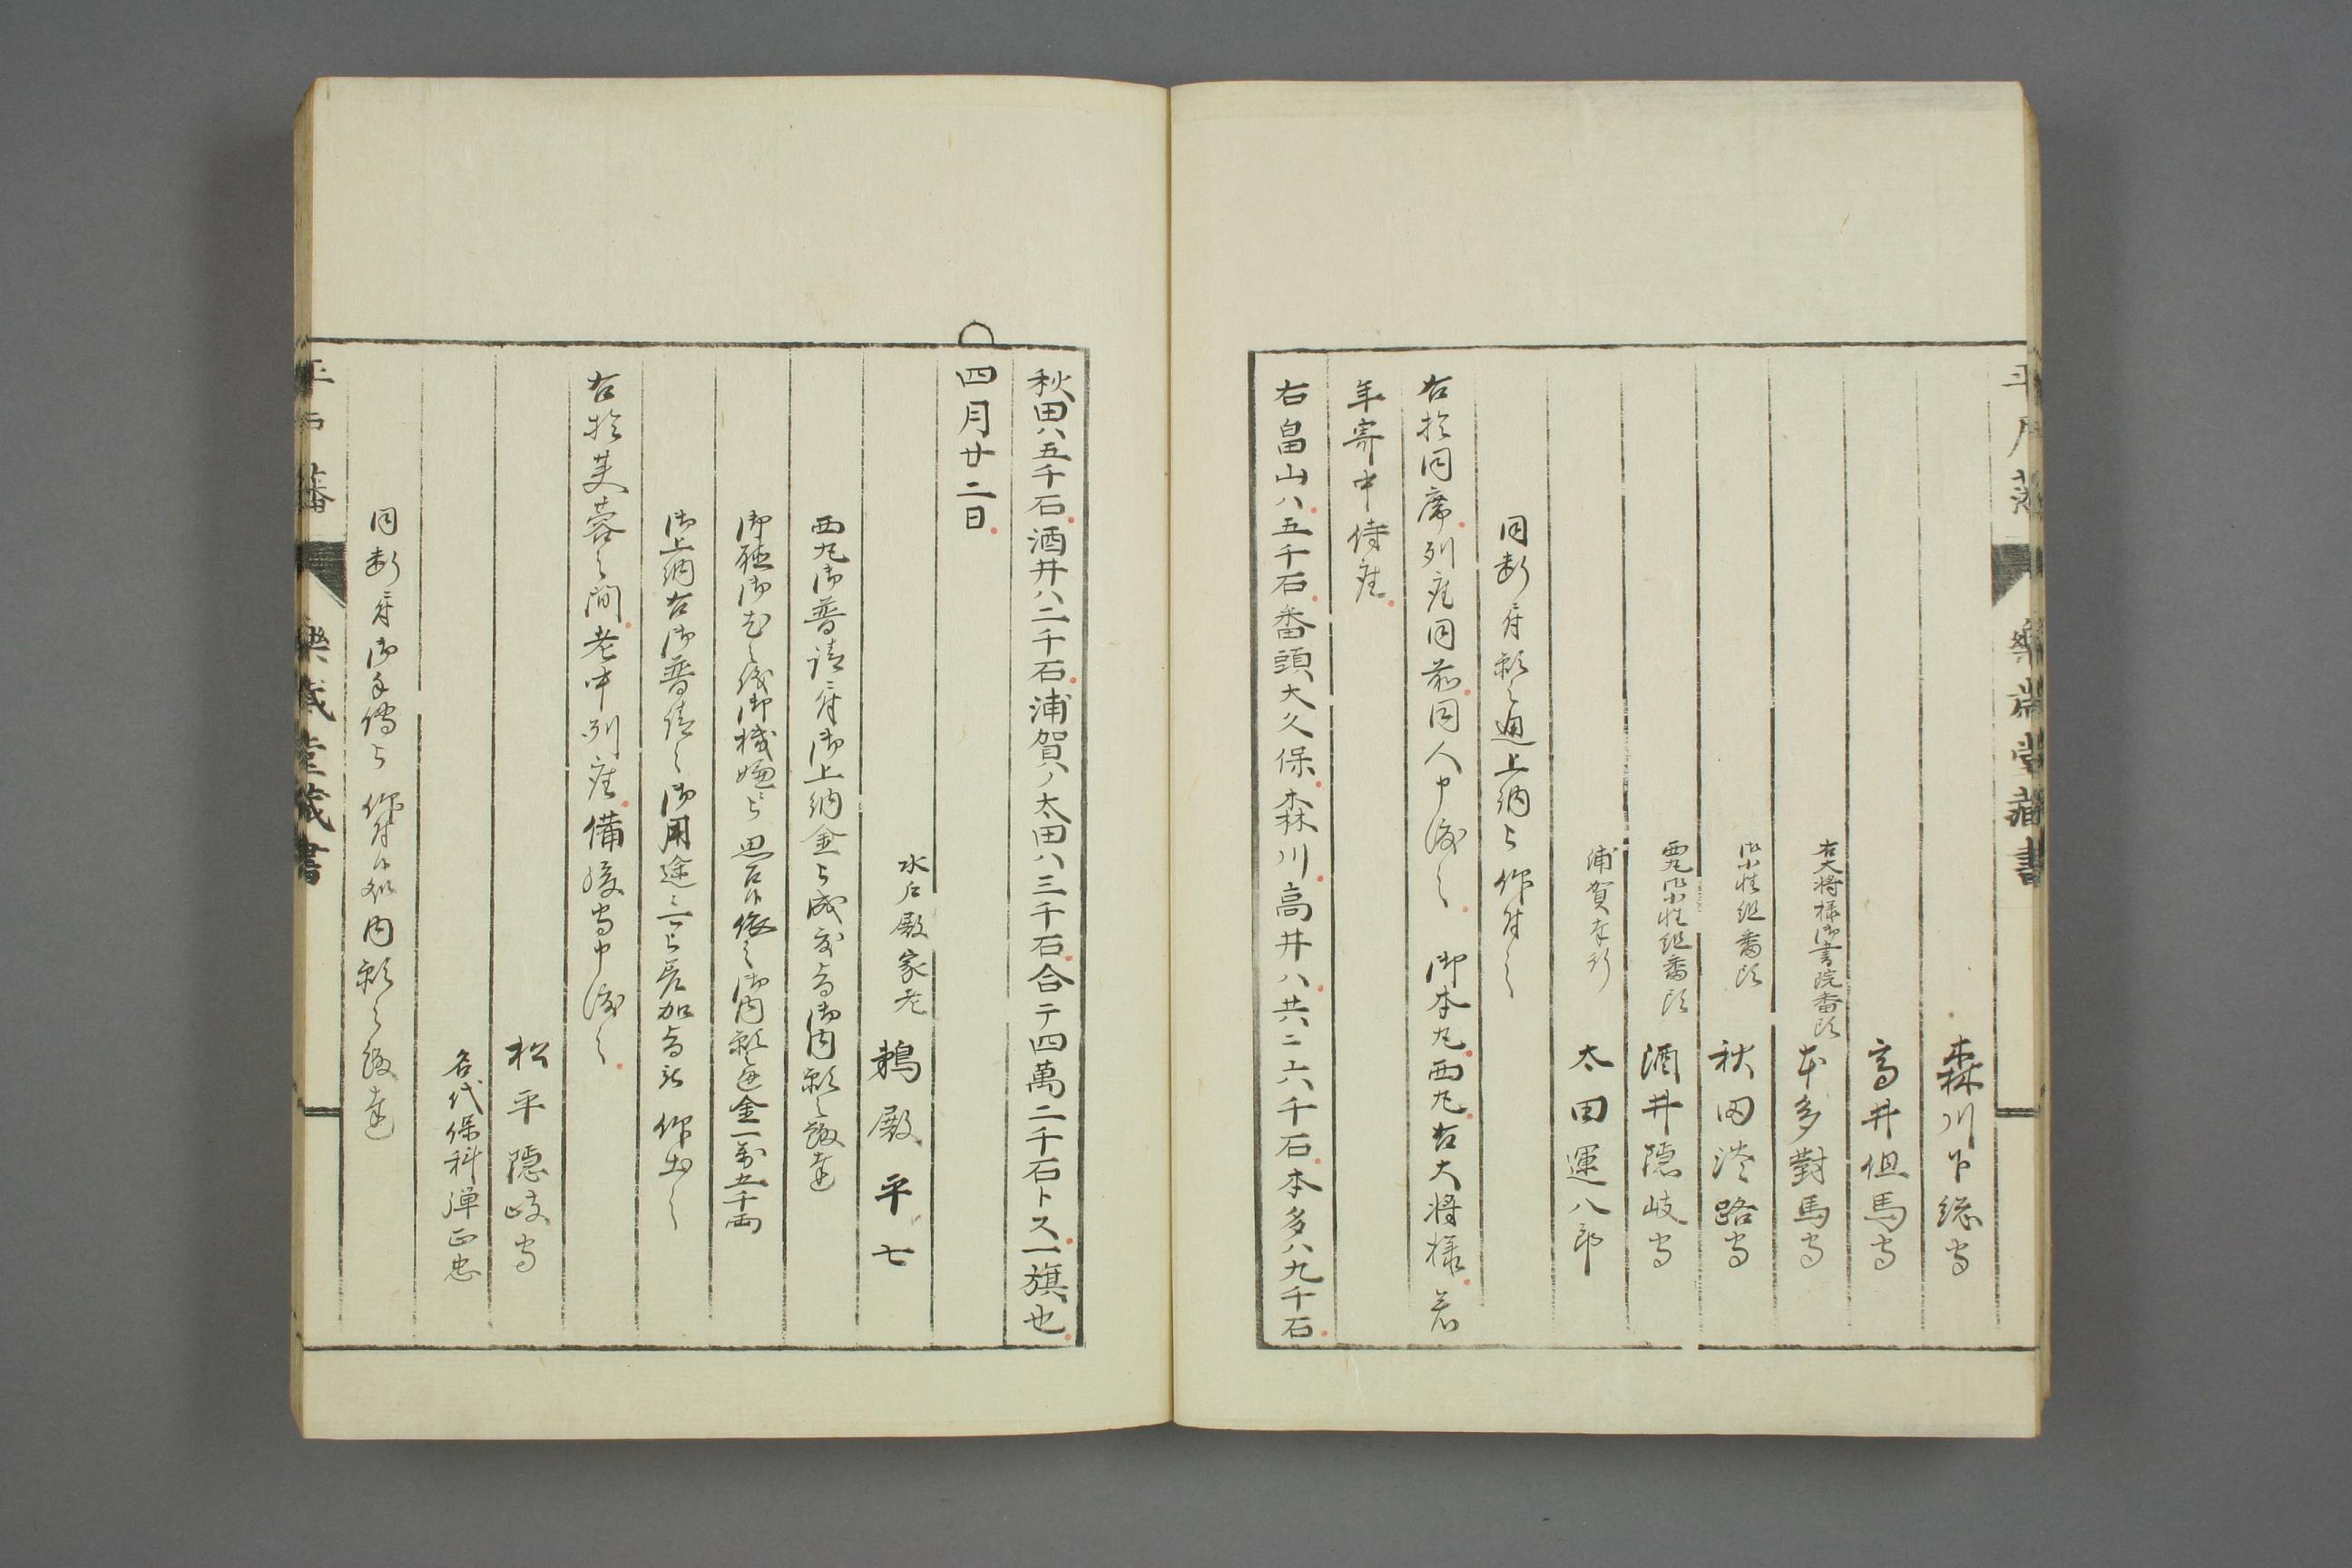 平戸藩 樂歳堂藏書
森川下総守
高井但馬守
右大将様御書院番頭 本多對馬守
御小性組番頭 秋田淡路守
西丸御小性組番頭 酒井隠岐守
浦賀奉行 太田運八郎
同断ニ付願之通上納被 仰付之
右於同席列座同前同人申渡之 御本丸西丸右大将様若
年寄中侍座
右畠山ハ五千石番頭大久保森川高井ハ共ニ六千石本多ハ九千石
秋田ハ五千石酒井ハ二千石浦賀ノ太田ハ三千石合テ四萬二千石トス一旗也
四月廿二日
水戸殿家老 鵜殿平七
西丸御普請ニ付御上納金被成度旨御内願之趣達
御聴御志之儀御機嫌ニ被 思召候依之御内願之通金一万五千両
御上納右御普請之御用途ニ可被差加旨被 仰出之
右於芙蓉之間老中列座備後守申渡之
松平隠岐守
名代保科弾正忠
同断ニ付御手傳被 仰付候処内願之趣達
平戸藩 樂歳堂藏書